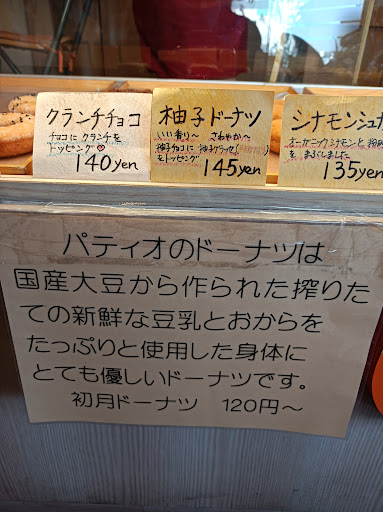 クランチチョコ
チョコに クランチを
トッピング♡
140yen
柚子ドーナツ
いい香り〜 さわやか〜
柚子チョコに 柚子クランチ
をトッピング
145yen
シナモンシュガ
オーガニックシナモンと
をまぶしました
135yen
パティオのドーナツは
国産大豆から作られた搾りた
ての新鮮な豆乳とおからを
たっぷりと使用した身体に
とても優しいドーナツです。
初月ドーナツ 120円〜